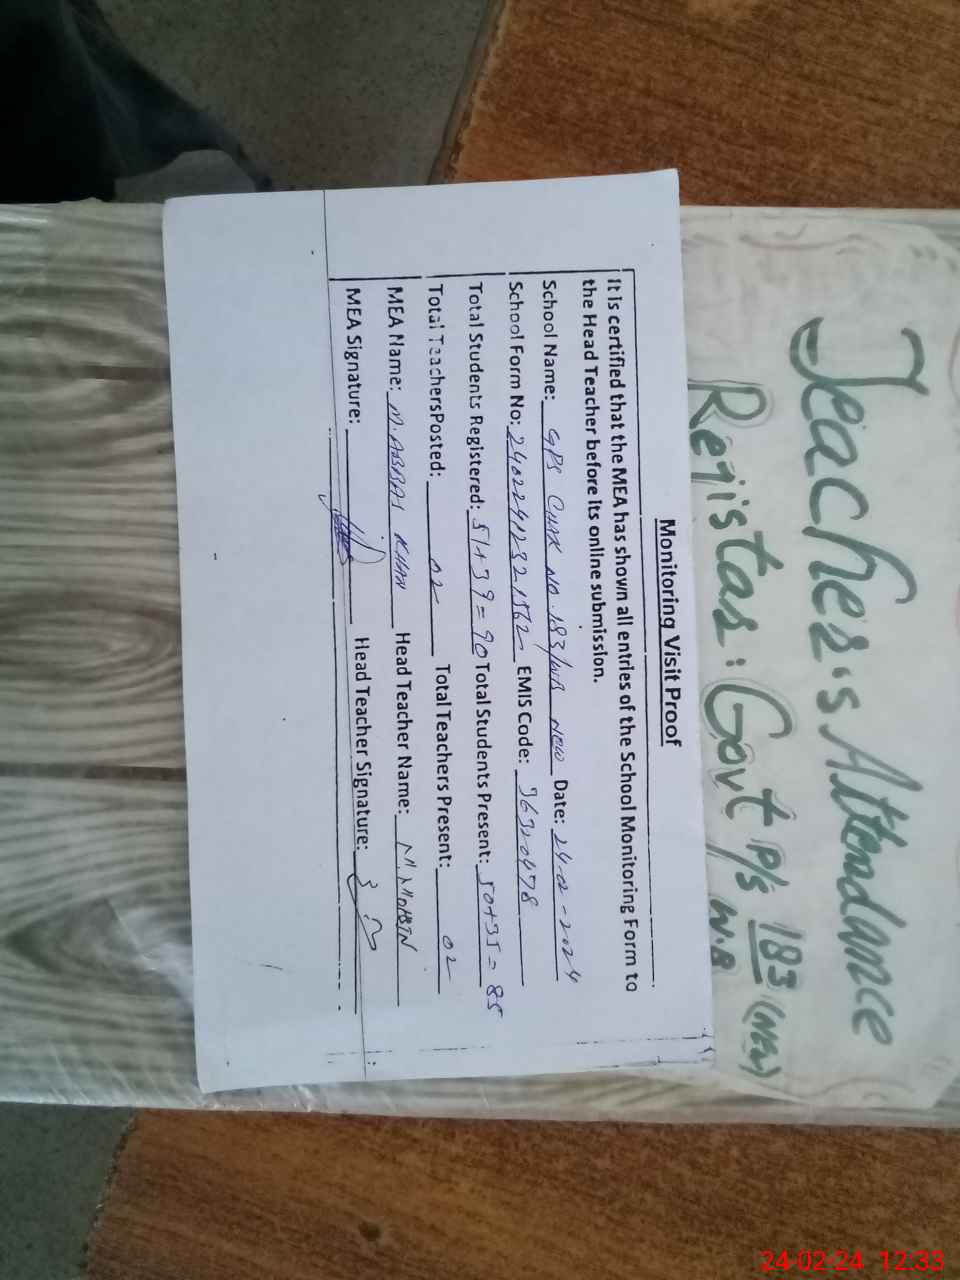 Teacher's Attendance
Registas: Govt P/s 183 (New)
W.B
Monitoring Visit Proof
It is certified that the MEA has shown all entries of the School Monitoring Form to
the Head Teacher before its online submission.
School Name: GPS CHAK NO. 183/WB NEW Date: 24-02-2024
School Form No: EMIS Code: 36320478
Total Students Registered: 51+39=90 Total Students Present: 50+35=85
Total TeachersPosted: 02 Total Teachers Present: 02
MEA Name: M.ABBAS KHAN Head Teacher Name: M MOHSIN
MEA Signature: Head Teacher Signature:
24-02-24 12:33